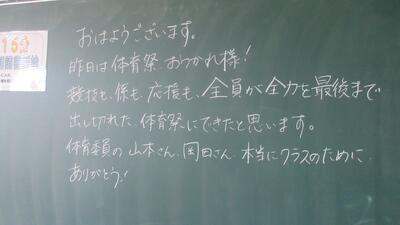 おはようございます。
昨日は体育祭おつかれ様!
競技も、係も、応援も、全員が全力を最後まで
出し切れた、体育祭にできたと思います。
体育委員の山本さん、岡田さん、本当にクラスのために
ありがとう!